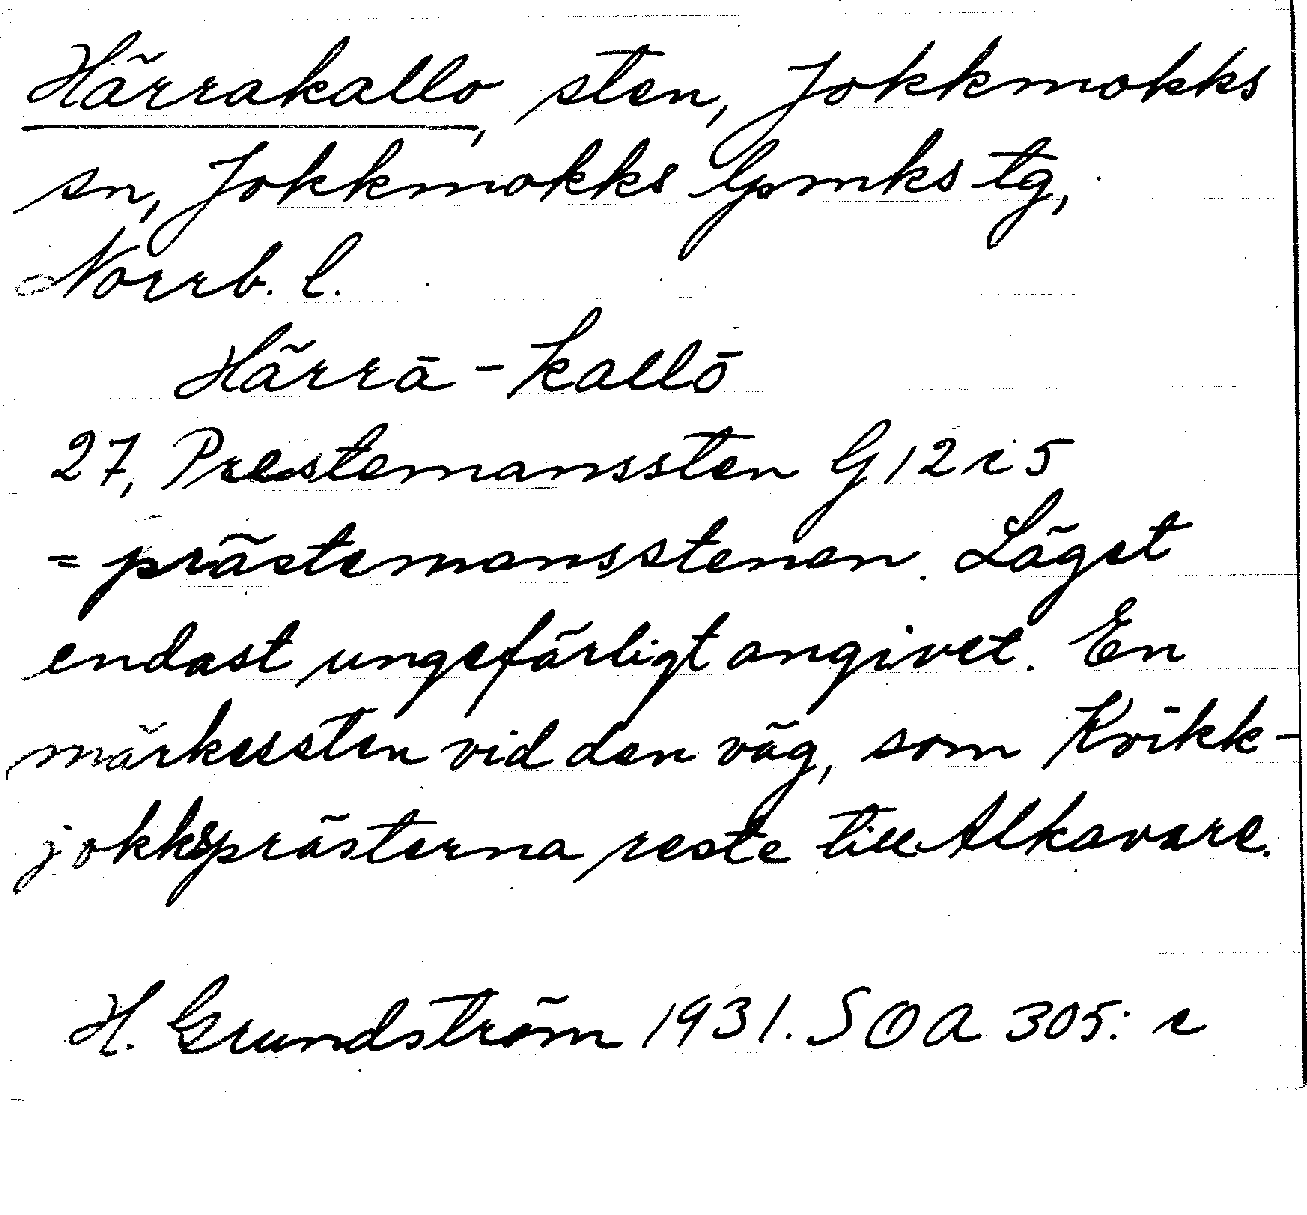 Härrakallo, sten, Jokkmokks
sn, Jokkmokks lpmks tg,
Norrb. l.
Härrā - kallō
27, Prestemanssten G 12 c 5
= prästemansstenen. Läget
endast ungefärligt angivet. En
märkessten vid den väg, som Kvikk-
jokksprästerna reste till Alkavare.
H. Grundström 1931. SOA 305: c